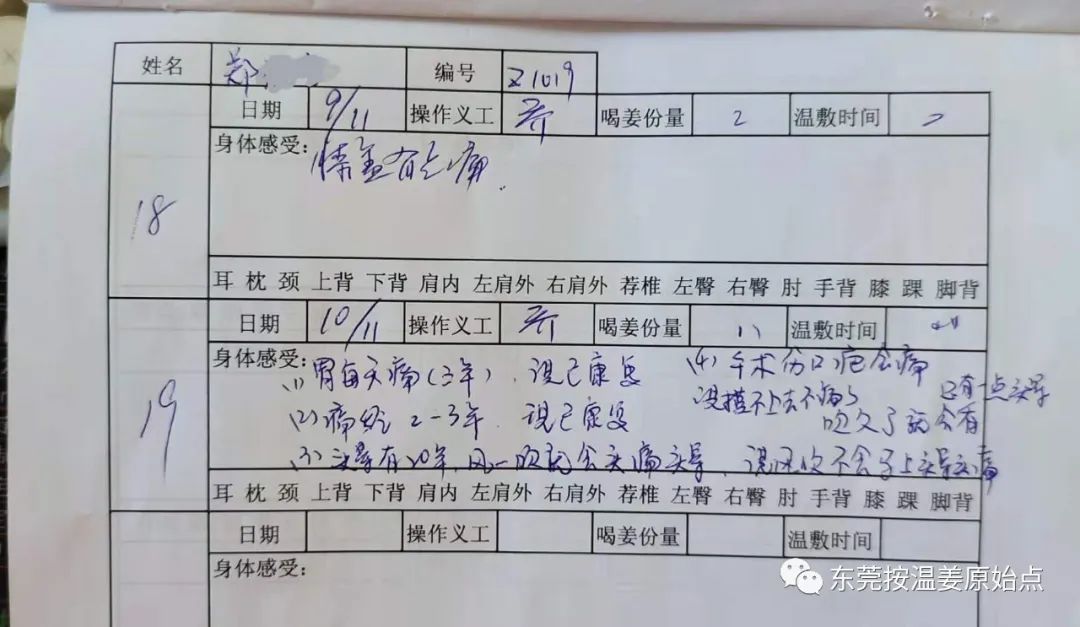 姓名 郑 编号 Z1019
18 日期 9/11 操作义工 喝姜份量 2 温敷时间
身体感受: 膝盖有点痛.
耳 枕 颈 上背 下背 肩内 左肩外 右肩外 荐椎 左臀 右臀 肘 手背 膝 踝 脚背
19 日期 10/11 操作义工 喝姜份量 温敷时间
身体感受:
(1) 胃每天痛(3年). 现已康复
(2) 痛经 2-3年. 现已康复
(3) 头晕有20年, 风一吹就会头痛头晕. 现风吹不会马上头晕头痛
(4) 手术伤口疤会痛
现摸上去不痛了
只有一点头晕
吹久了就会有
耳 枕 颈 上背 下背 肩内 左肩外 右肩外 荐椎 左臀 右臀 肘 手背 膝 踝 脚背
日期 操作义工 喝姜份量 温敷时间
身体感受:
东莞按温姜原始点